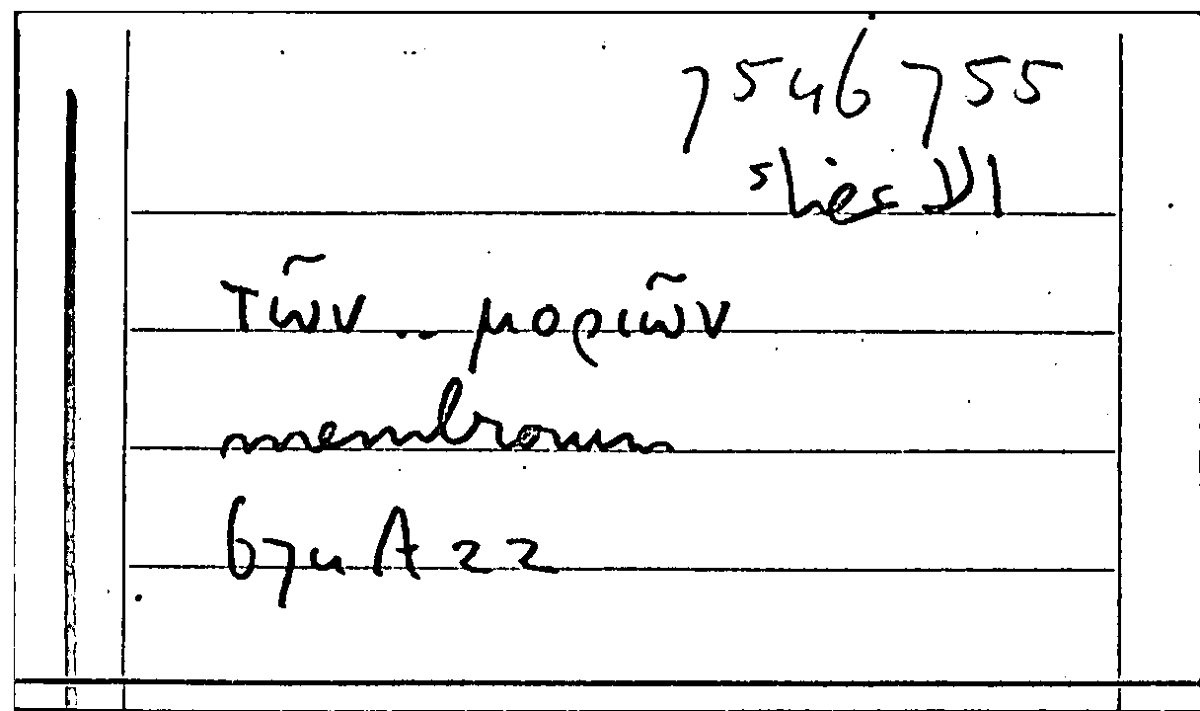 7546755
τῶν .. μοριῶν
membrorum
674A22